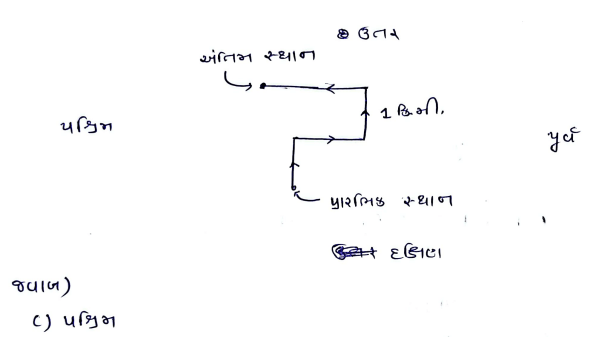 ઉતર
અંતિમ સ્થાન
1 કિ.મી.
પશ્ચિમ
પૂર્વ
પ્રારંભિક સ્થાન
દક્ષિણ
જવાબ)
C) પશ્ચિમ